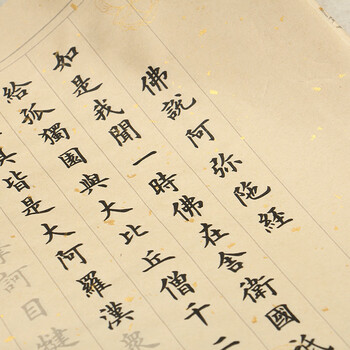 佛說阿弥陀經
如是我聞一時佛在舍衛國祇
給孤獨園與大比丘僧千二
皆是大阿羅漢眾
訶目犍